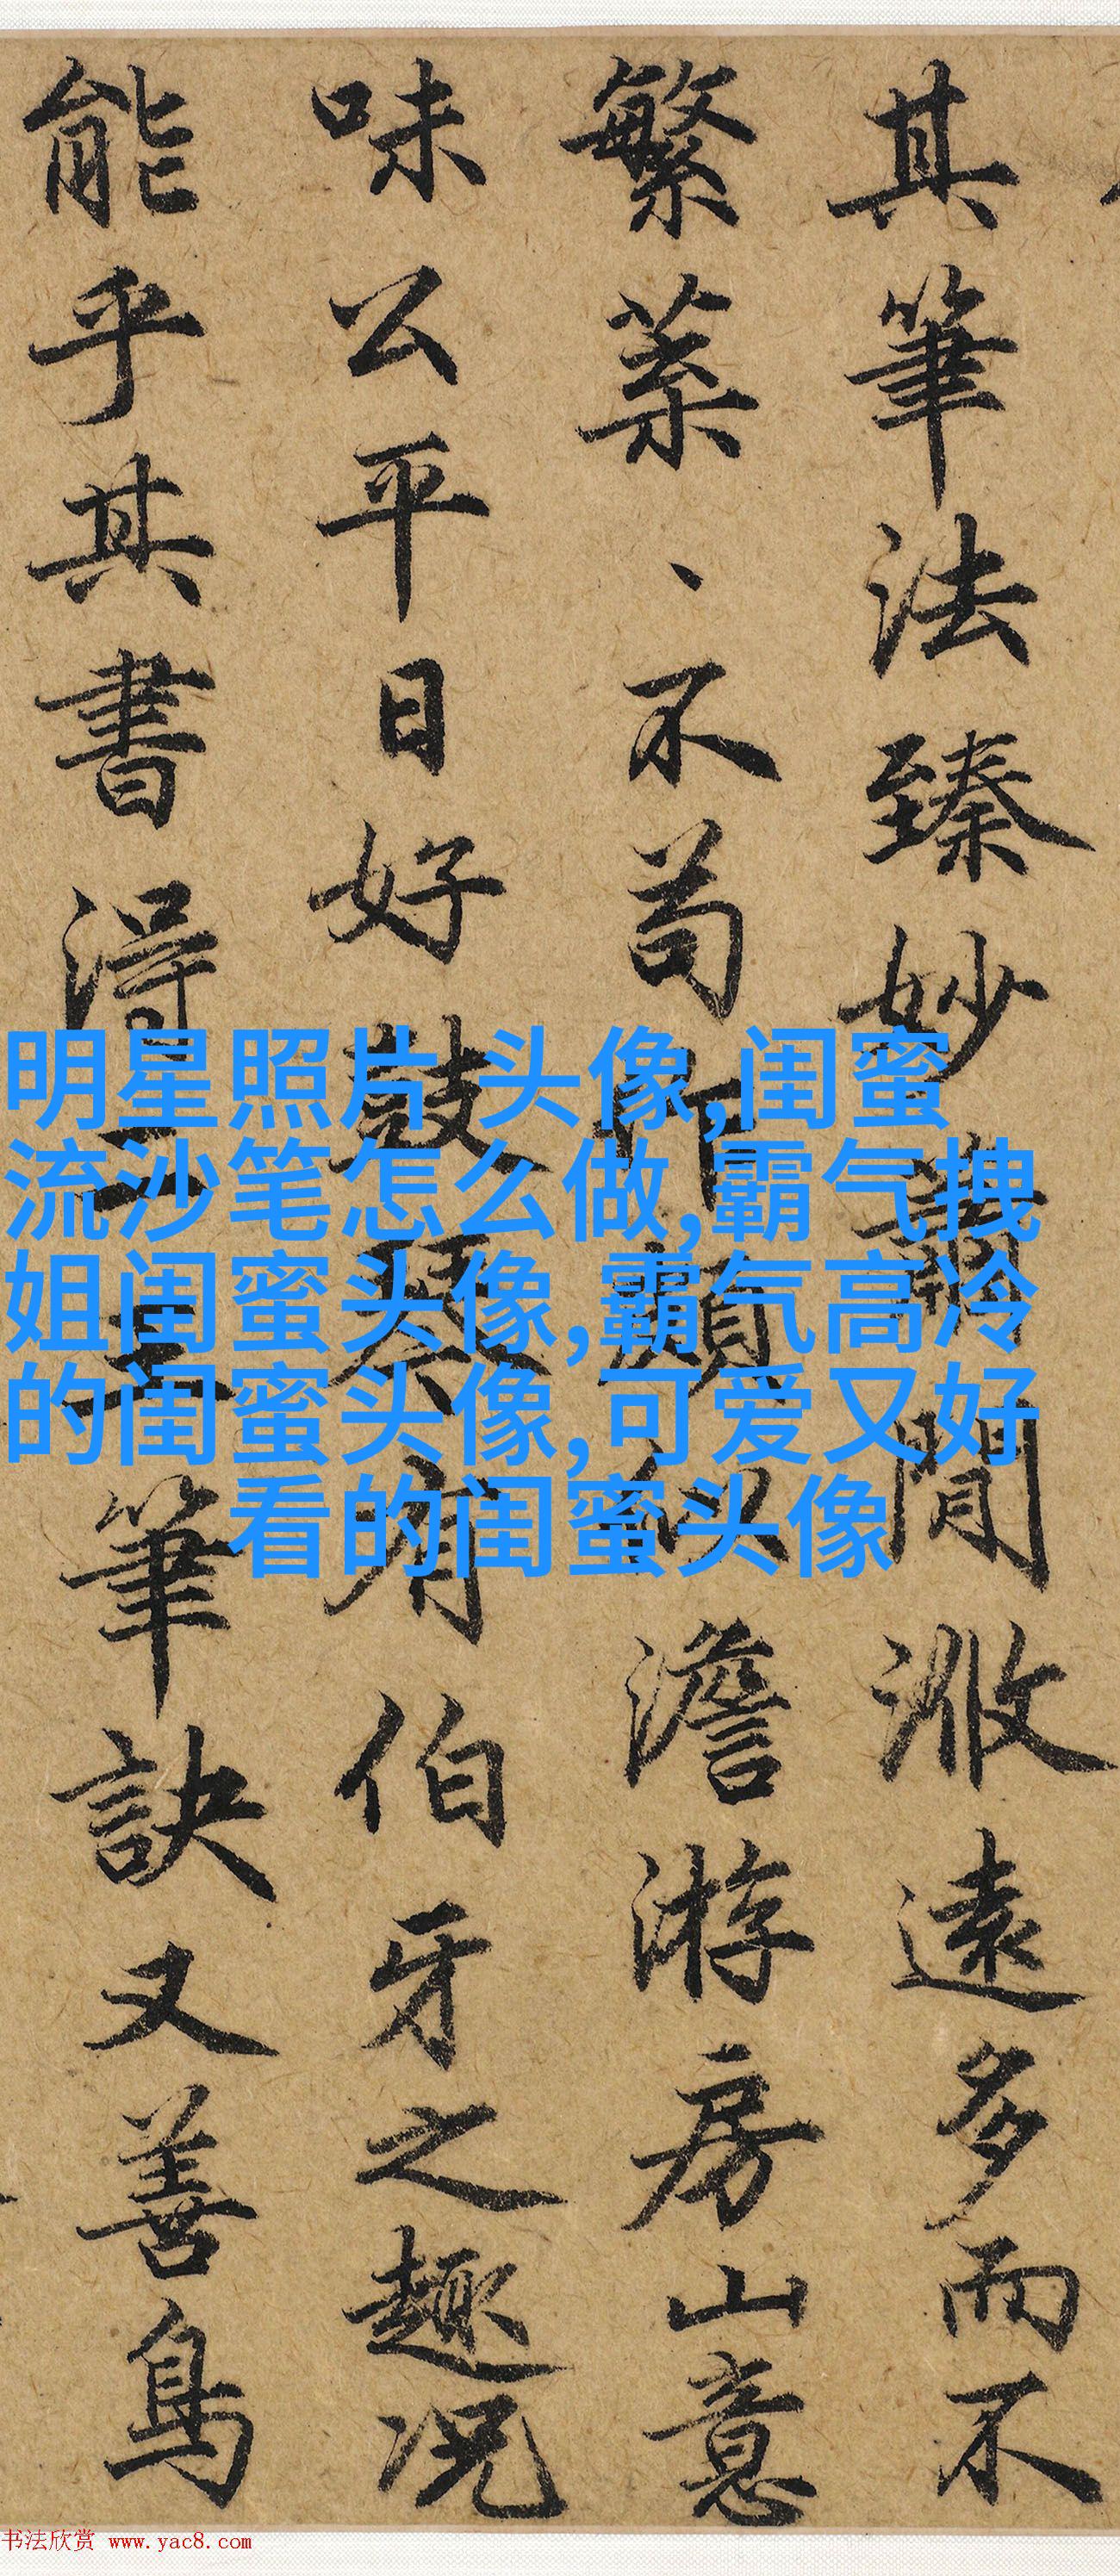 其筆法臻妙
閒
遠多而不
繁菜、不苟
澹游房山意
味公平日好鼓琴有伯牙之趣况
能乎其書得二王筆訣又善鳥
明星照片 头像,闺蜜
流沙笔怎么做,霸气拽
姐闺蜜头像,霸气高冷
的闺蜜头像,可爱又好
看的闺蜜头像
书法欣赏 www.yac8.com